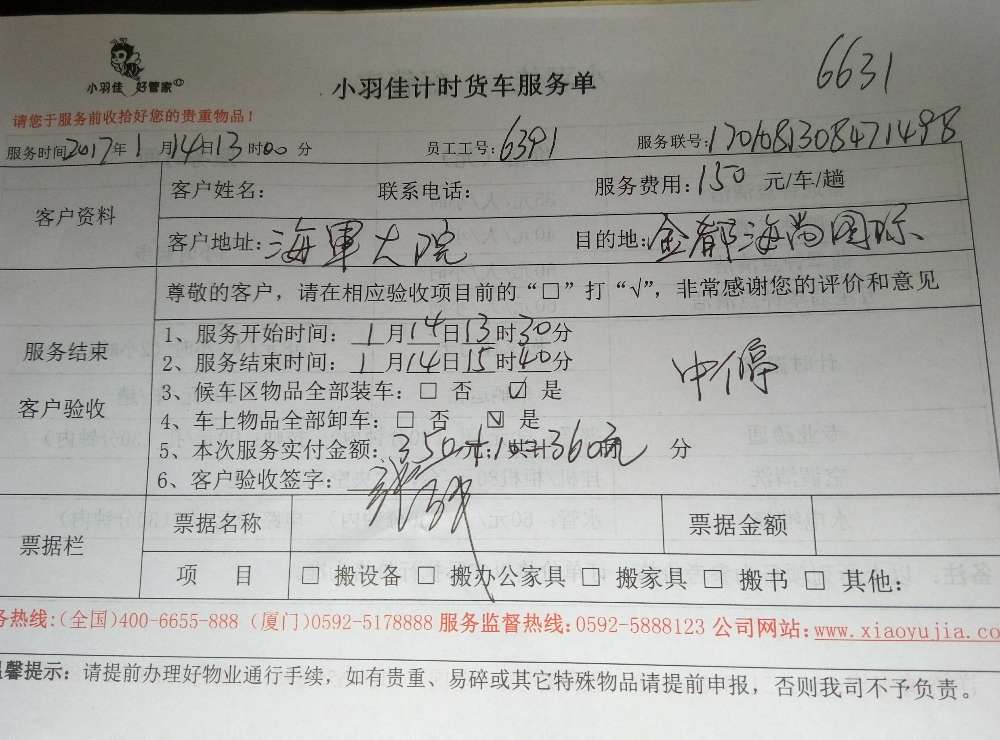 小羽佳 好管家
小羽佳计时货车服务单
6631
请您于服务前收拾好您的贵重物品！
服务时间2017年1月14日13时00分 员工工号：6391 服务联号：1701081308471498
客户资料
客户姓名： 联系电话： 服务费用：150元/车/趟
客户地址：海軍大院 目的地：金都海尚国际
服务结束
客户验收
尊敬的客户，请在相应验收项目前的“□”打“√”，非常感谢您的评价和意见
1、服务开始时间：1月14日13时30分
2、服务结束时间：1月14日15时40分
3、候车区物品全部装车：□ 否 ☑ 是
4、车上物品全部卸车：□ 否 ☑ 是
中停
5、本次服务实付金额：350 共计360 分
6、客户验收签字：
票据栏
票据名称 票据金额
项 目 □ 搬设备 □ 搬办公家具 □ 搬家具 □ 搬书 □ 其他：
务热线：(全国)400-6655-888 (厦门)0592-5178888 服务监督热线：0592-5888123 公司网站：www.xiaoyujia.co
温馨提示：请提前办理好物业通行手续，如有贵重、易碎或其它特殊物品请提前申报，否则我司不予负责。